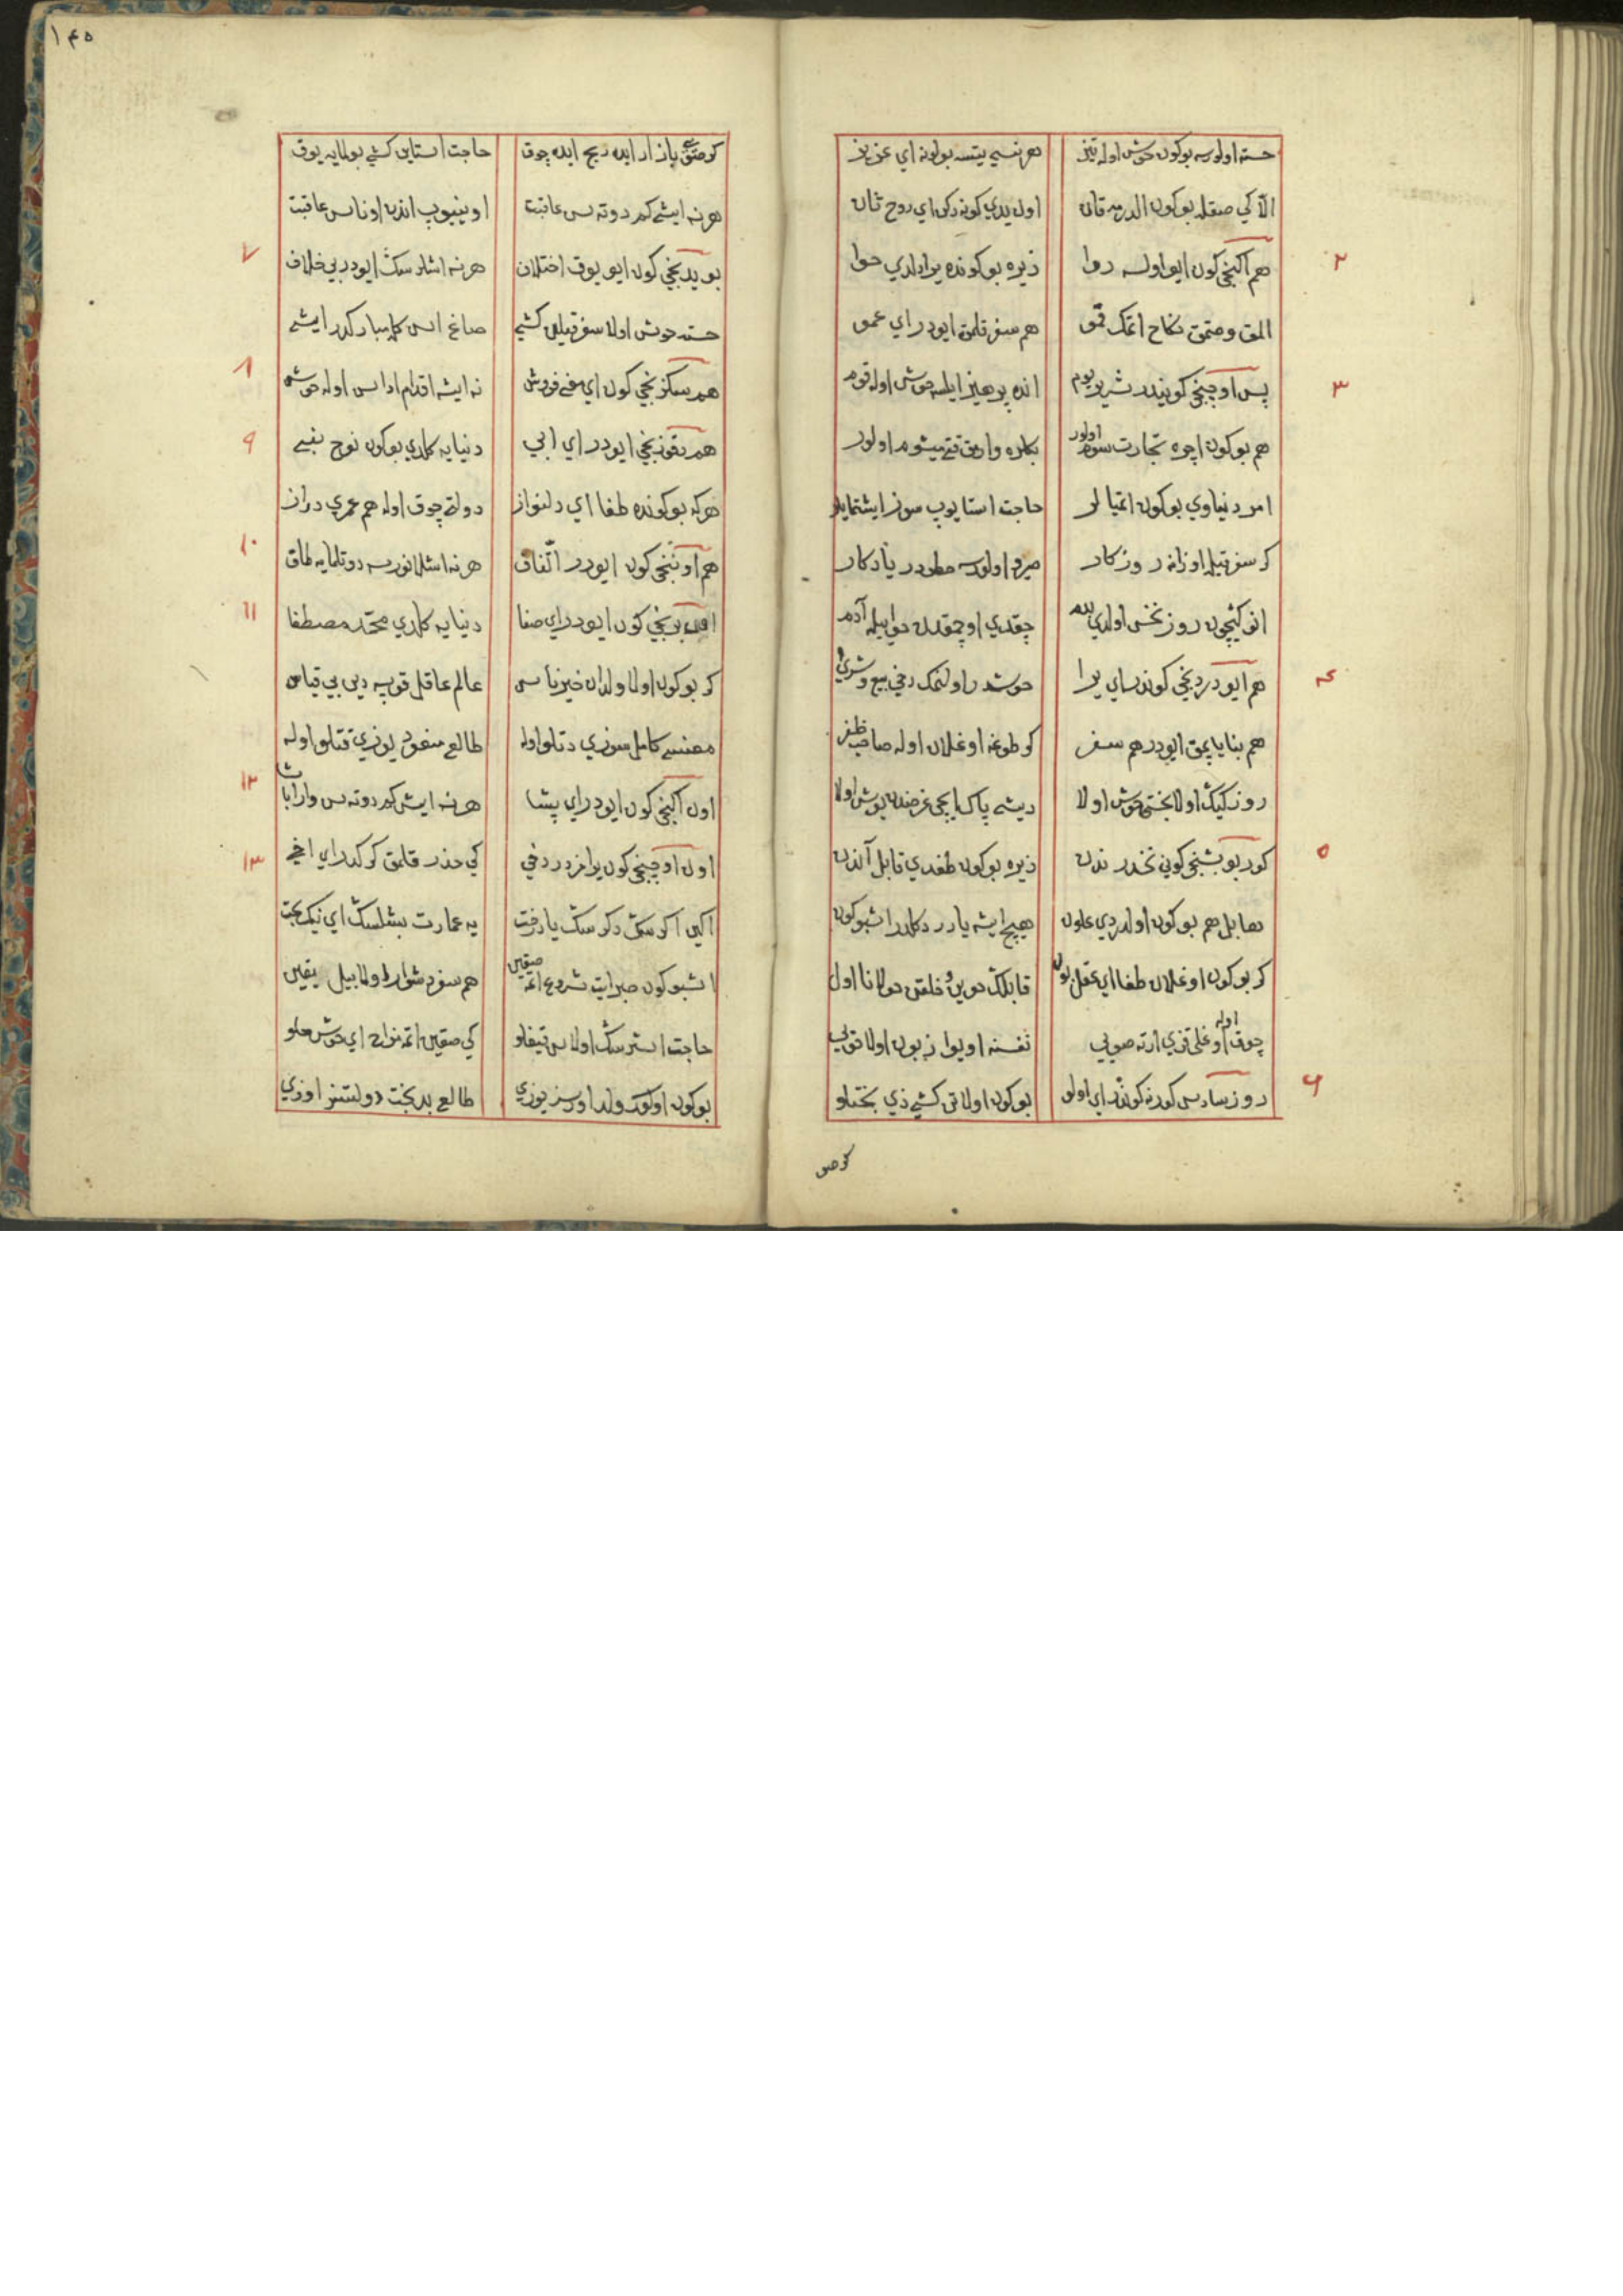 ١٤٥
خسته اولورسه بوکون خوش اوله تیز
هر نسی یتسه بولونه ای عزیز
الا کی صقله بوکون الدرمه قان
اول یدی کونه دکن ای روح ثان
٢
هم ایکنجی کون ایو اولسه روا
زیره بو کونده یرادلدی حوا
المق و صتمق نکاح اتمک قمو
هم سفر قلمق ایودر ای عمو
٣
پس اوچنجی کونیدر شریر یوم
انده پرهیز ایلسه خوش اوله قوم
هم بوکون اچره تجارت سوم اولور
بکلره وارمق قتی میشوم اولور
امر دنیاوی بوکون اتمیالر
حاجت استایوپ سوز ایشتمایلر
کر سفر قیله اوزانه روزکار
اول کیچون روز نحس اولدی
چقدی اوچمقدن حوا بیله آدم
٤
هم ایودر دردنجی کوندر ای یرا
خوشدر اولنمک دخی بیع و شری
هم بنا یاپمق ایودر هم سفر
کر طوغه اوغلان اوله صاحب ظفر
روزکیک اولا بختی خوش اولا
دیشی پاک ایچی غرضدن بوش اولا
٥
کور بو بشنجی کونی نحسدر ندن
زیره بوکون طغدی قابل آندن
هابل هم بوکون اولدردی علون
هیچ ایشه یارر دکلدر اشبو کون
کر بوکون اوغلان طغا ای عقل
قابلک خوین و خلقن
چوق اوله اوغلی قزی ارته صویی
نفسنه اویوا زبون اولا خویی
٦
روز سادس کورنه کوندر ای اولو
بوکون اولاتی کشی ذی بختلو
کر صتو
کر صتو بازار ایده ربح ایده چوق
حاجت استاین کشی بولمایه یوق
هر نه ایشی کم دوته سن عاقبت
اوینیوپ اندن اوناسن عاقبت
٧
بو یدنجی کون ایو یوق اختلاف
هر نه اشلرسک ایودر بی خلاف
خسته خوش اولا سفر قیلن کشی
صاغ اسن کله مبارکدر ایشی
٨
هم سکزنجی کون ای می فروش
نه ایشه اقدام اداسن اوله خوش
٩
هم طقوزنجی ایودر ای ابی
دنیایه کلدی بوکون نوح نبی
هر که بو کونده طغا ای دلنواز
دولتی چوق اوله هم عمری دراز
١٠
هم اوننجی کون ایودر اتفاق
هر نه اشلانورسه دوتلمایه طاق
١١
اون برنجی کون ایودر ای صفا
دنیایه کلدی محمد مصطفا
کر بوکون اولا ولدان خیر ناس
عالم عاقل قویسه دین بی قیاس
معنسی کامل سوزی دتلو اوله
طالع مسعود یوزی قتلو اوله
١٢
اون ایکنجی کون ایودر ای پشا
هر نه ایش کم دوته سن وار
١٣
اون اوچنجی کون یرامزدر دخی
کی حذر قلمق کرکدر ای اخی
اکین اکرسک دکرسک یا درخت
یه عمارت بشلسک ای نیک بخت
اشبو کون صبر ایت شروع اتمه صقین
هم سفر دشوار اولا بیل یقین
حاجت استرسک اولاسن قیغلو
کی صقین اتمه مزاح ای خوش
بوکون اولوکز ولد اورسز یوزی
طالع بدبخت دولتسز اوزی